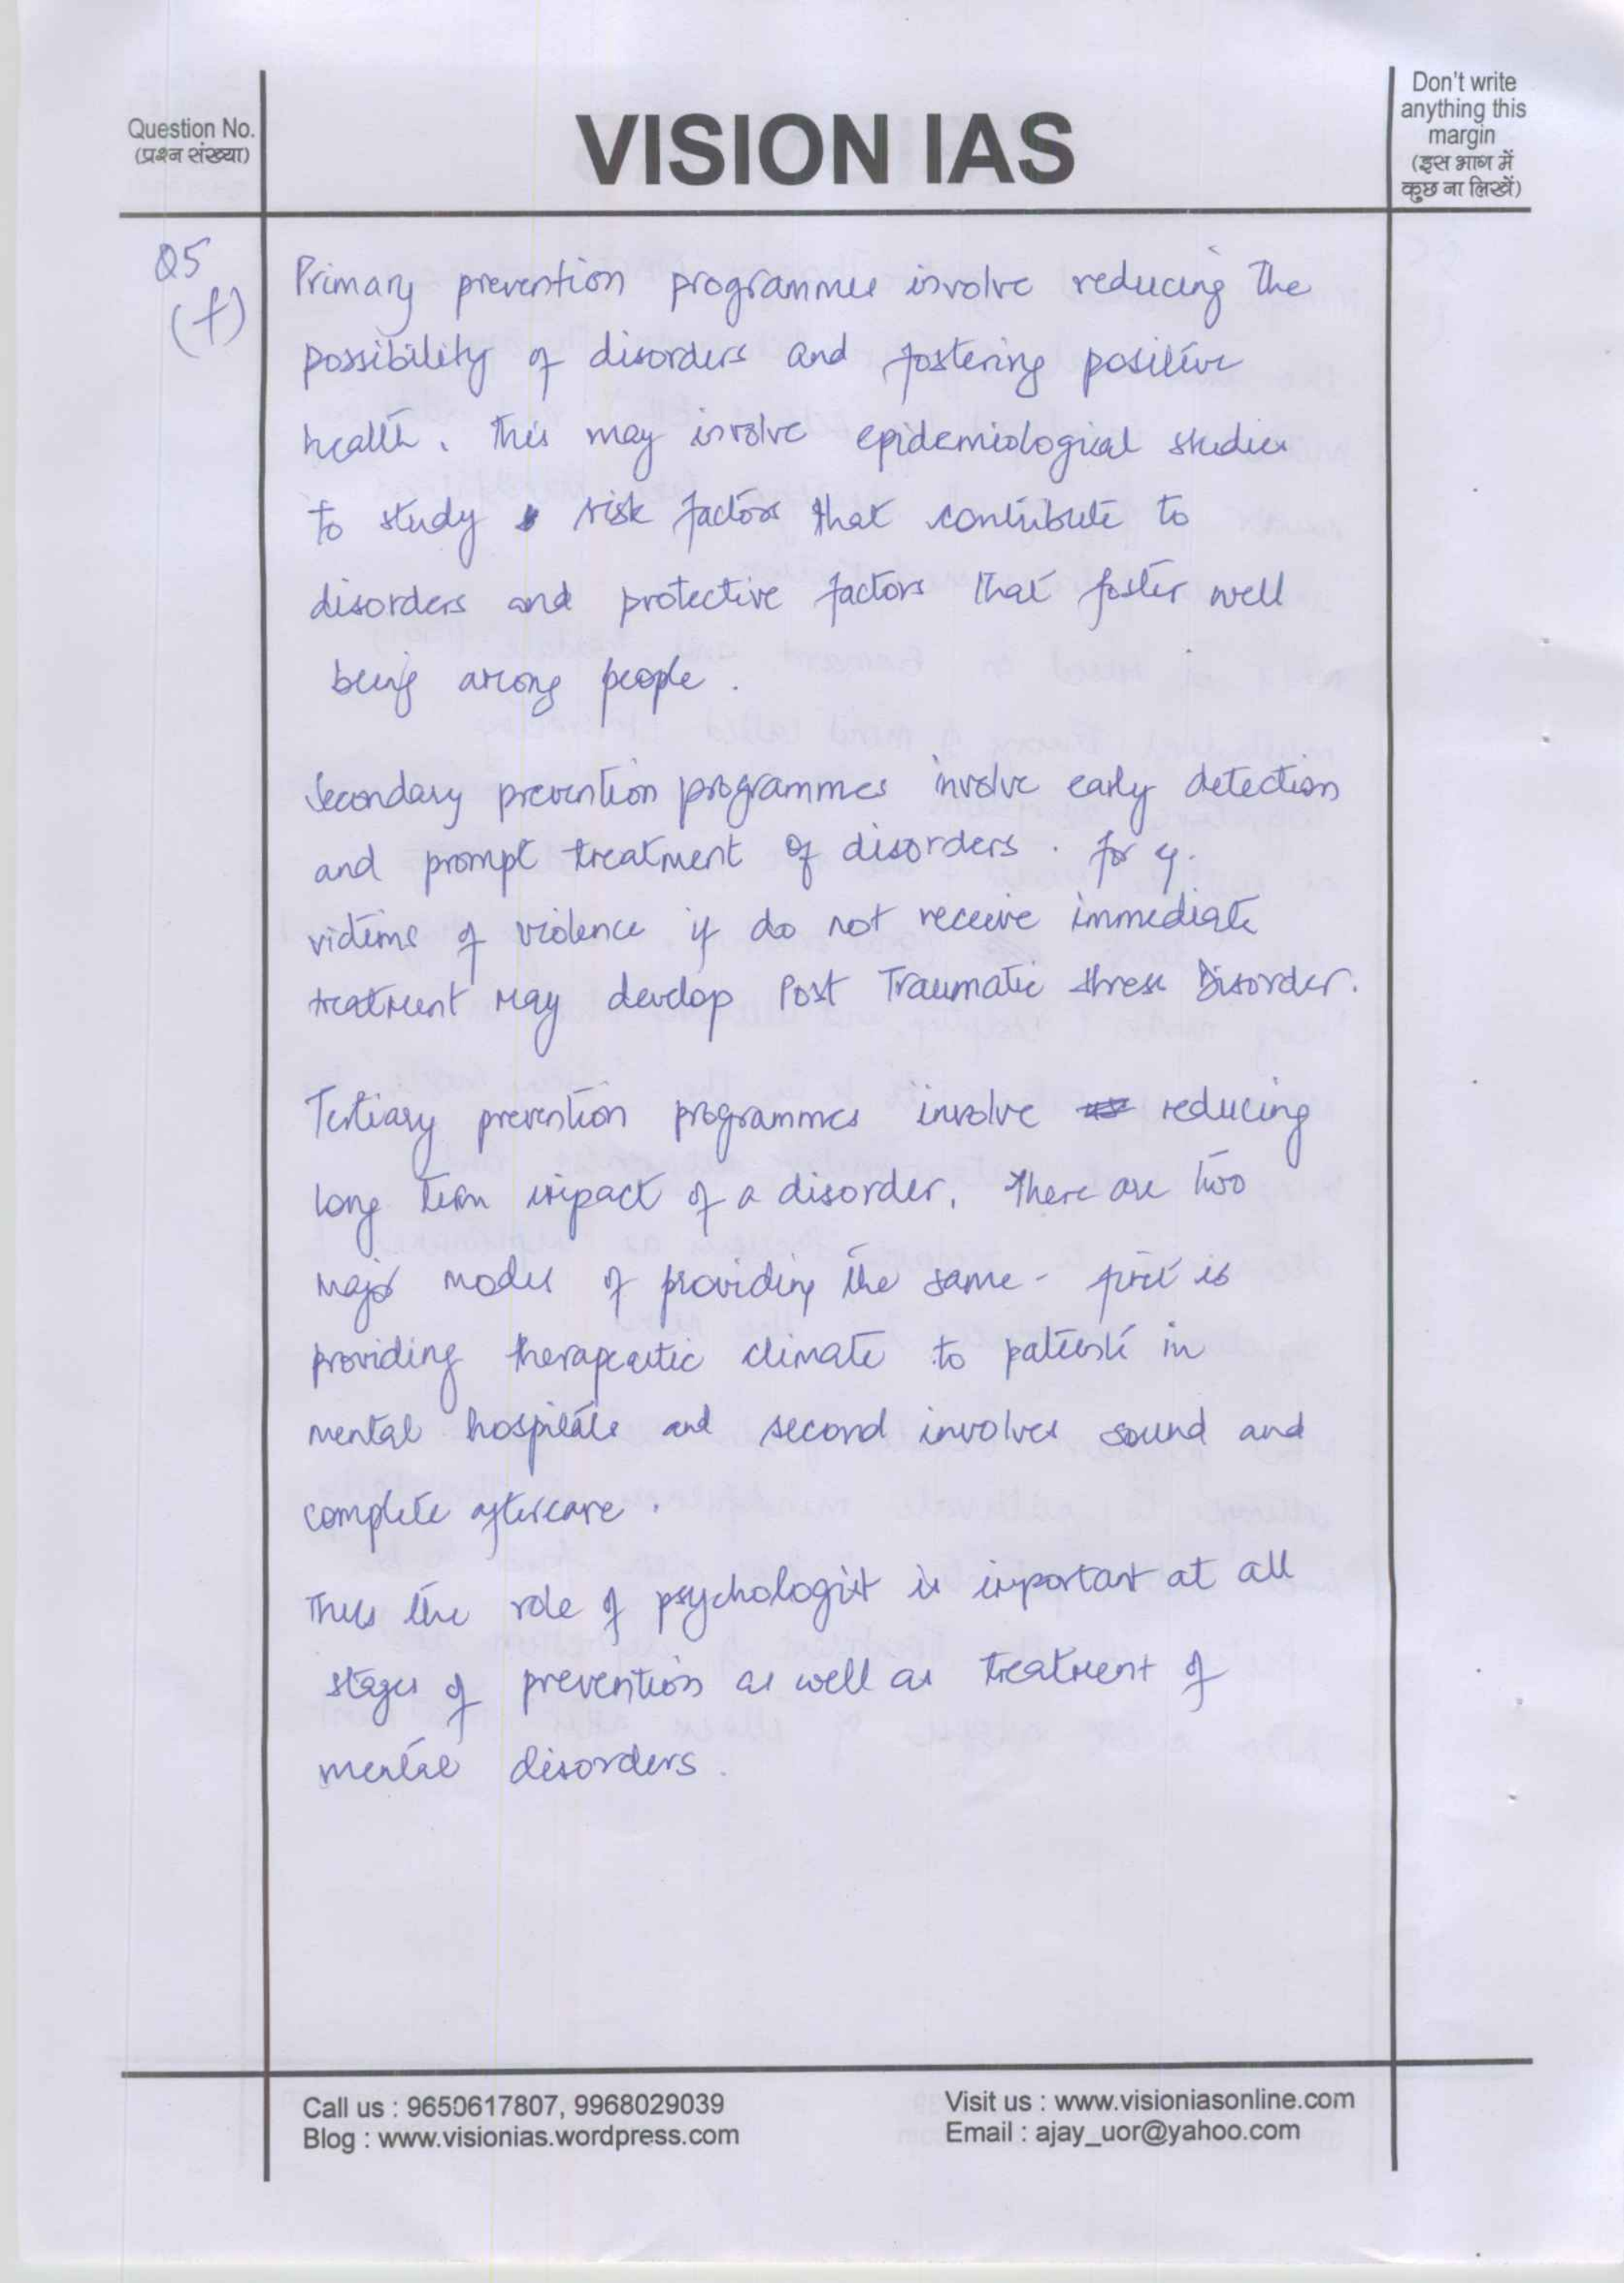 Question No.
(प्रश्न संख्या)
VISION IAS
Don't write
anything this
margin
(इस भाग में
कुछ ना लिखें)
Q5
(f)
Primary prevention programmes involve reducing the
possibility of disorders and fostering positive
health. This may involve epidemiological studies
to study risk factors that contribute to
disorders and protective factors that foster well
being among people.
Secondary prevention programmes involve early detection
and prompt treatment of disorders. for eg.
victims of violence if do not receive immediate
treatment may develop Post Traumatic Stress Disorder.
Tertiary prevention programmes involve reducing
long term impact of a disorder. There are two
major modes of providing the same - first is
providing therapeutic climate to patients in
mental hospitals and second involves sound and
complete aftercare.
Thus the role of psychologist is important at all
stages of prevention as well as treatment of
mental disorders.
Call us : 9650617807, 9968029039
Blog : www.visionias.wordpress.com
Visit us : www.visioniasonline.com
Email : ajay_uor@yahoo.com